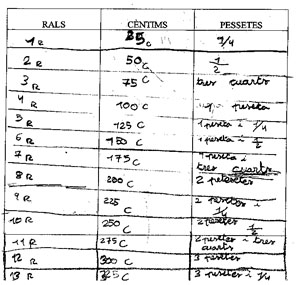 RALS CÈNTIMS PESSETES
1 R 25 c 1/4
2 R 50 C 1/2
3 R 75 C tres cuarts
4 R 100 C 1 peseta
5 R 125 C 1 peseta i 1/4
6 R 150 C 1 peseta i 1/2
7 R 175 C 1 peseta i tres cuarts
8 R 200 C 2 pesetes
9 R 225 C 2 pesetes i 1/4
10 R 250 C 2 pesetes 1/2
11 R 275 C 2 pesetes i tres cuarts
12 R 300 C 3 pesetes
13 R 325 C 3 pesetes i 1/4